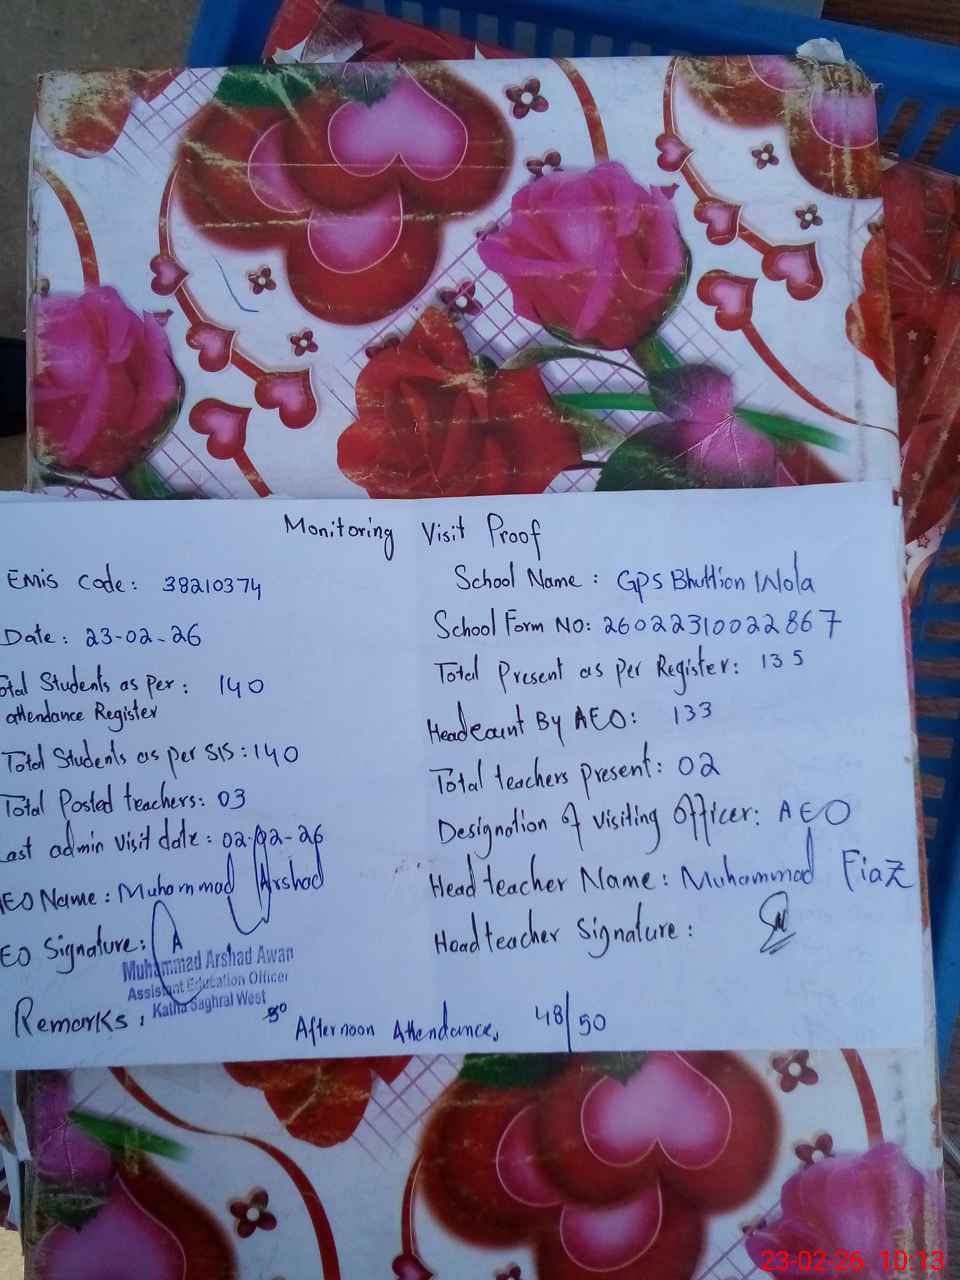 Monitoring Visit Proof
EMIS Code: 38210374
School Name: GPS Bhuttion Wola
Date: 23-02-26
School Form NO: 26022310022867
otal Students as per: 140
attendance Register
Total Present as per Register: 135
Headcount By AEO: 133
Total Students as per SIS: 140
Total teachers present: 02
Total Posted teachers: 03
Designation of visiting officer: AEO
Last admin visit date: 02-02-26
Head teacher Name: Muhammad Fiaz
AEO Name: Muhammad Arshad
Headteacher Signature:
EO Signature: A
Muhammad Arshad Awan
Assistant Education Officer
Katha Saghral West
Remarks: Afternoon Attendance, 48/50
23-02-26 10:13